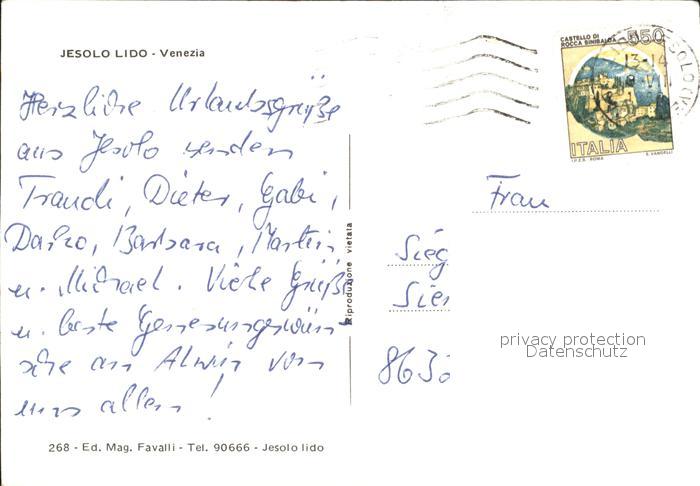 JESOLO LIDO - Venezia
Herzliche Urlaubsgrüße
aus Jesolo senden
Traudi, Dieter, Gabi,
Darko, Barbara, Martin
u. Michael. Viele Grüße
u. beste Genesungswün-
sche an Alwin von
uns allen!
268 - Ed. Mag. Favalli - Tel. 90666 - Jesolo lido
Riproduzione vietata
CASTELLO DI
ROCCA SINIBALDA
550
ITALIA
I.P.Z.S. ROMA
E. VANGELLI
13-14
Frau
Sieg
8630
privacy protection
Datenschutz